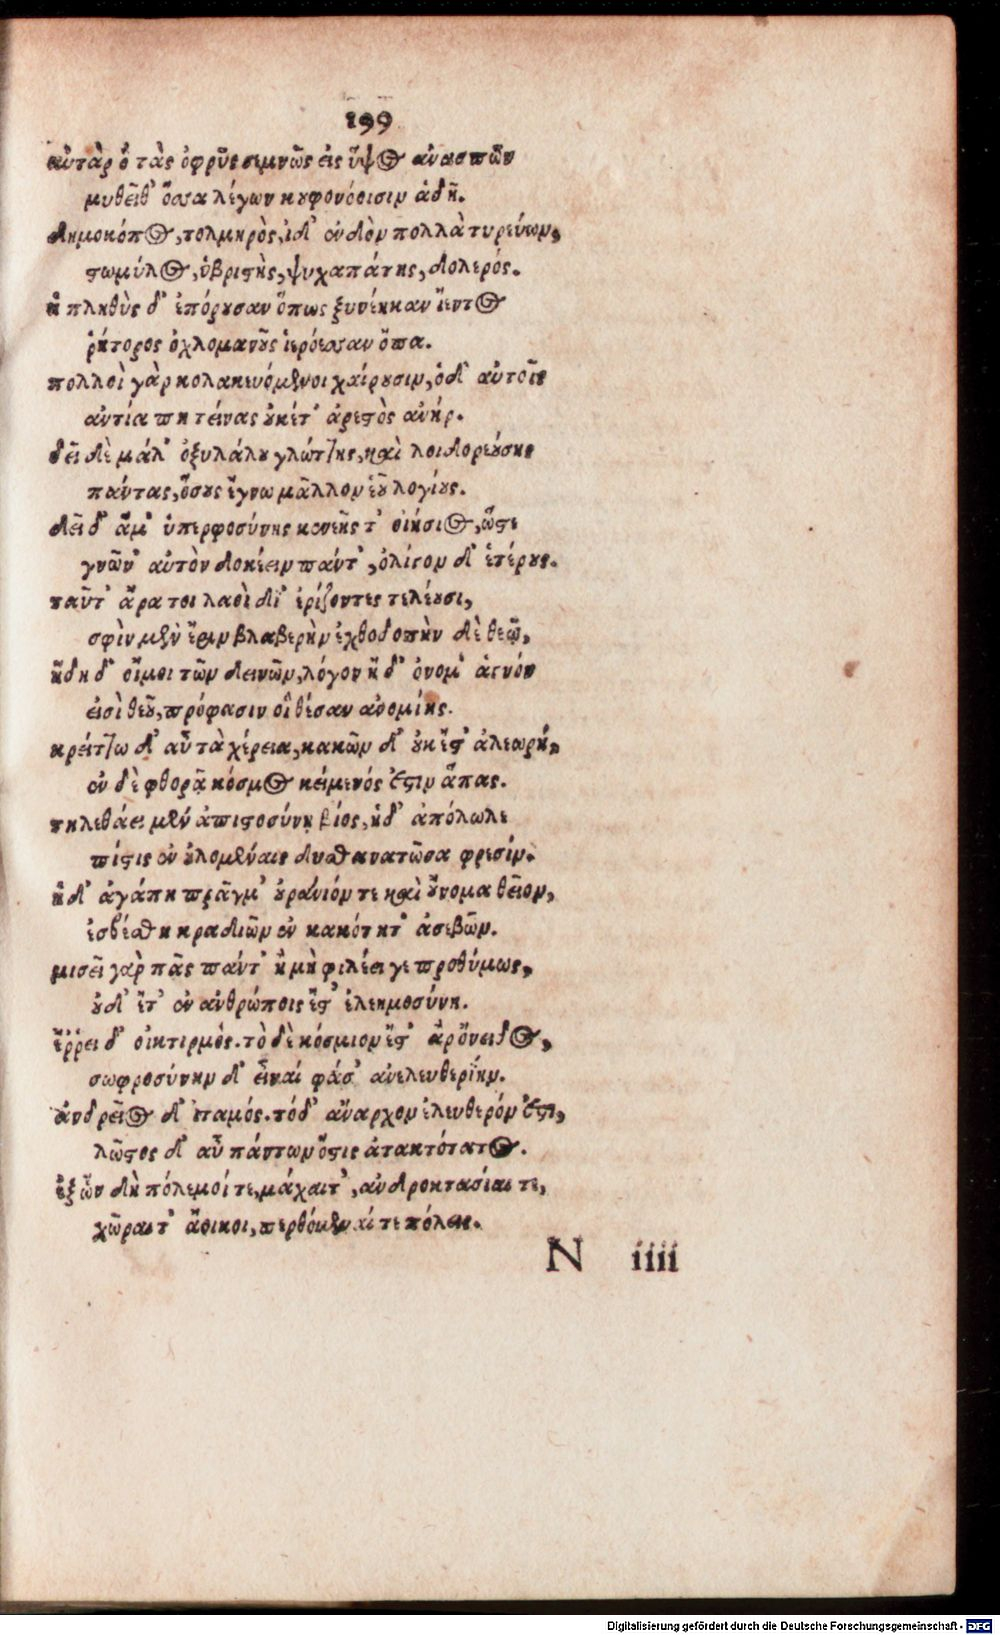 199
αὐτὰρ ὁ τὰς ὀφρῦς σεμνῶς εἰς ὕψος ἀνασπῶν
μυθεῖθ' ὅσσα λέγων κουφονόοισιν ἁδῇ.
δημοκόπος, τολμηρὸς, ἰδ' ἔνδον πολλὰ τυρεύων,
στωμύλος, ὑβριστὴς, ψυχαπάτης, δολερός.
ἡ πληθὺς δ' ἐπόρουσαν ὅπως ξυνέηκαν ἱέντος
ῥήτορος ὀχλομανοῦς ἱερόεσσαν ὄπα.
πολλοὶ γὰρ κολακευόμενοι χαίρουσιν, ὁ δ' αὐτοῖς
ἀντία πῃ τείνας οὐκέτ' ἀρεστὸς ἀνήρ.
δεῖ δὲ μάλ' ὀξυλάλου γλώττης, καὶ λοιδορεούσης
πάντας, ὅσους ἔγνω μᾶλλον ἐῢ λογίους.
δεῖ δ' ἅμ' ὑπερφοσύνης κενεῆς τ' οἰήσιος, ὥστε
γνῶν' αὐτὸν δοκέειν πάντ', ὀλίγον δ' ἑτέρους.
ταῦτ' ἄρα τοι λαοὶ δι' ἐρίζοντες τελέουσι,
σφὶν μὲν ἔριν βλαβερὴν ἐχθοδοπὴν δὲ θεῷ,
ἤδη δ' οἴμοι τῶν δεινῶν, λόγον ἠδ' ὄνομ' ἁγνόν
εἰσὶ θεοῦ, πρόφασιν οἳ θέσαν ἀνομίης.
κρείττω δ' αὖ τὰ χέρεια, κακῶν δ' οὐκ ἔστ' ἀλεωρή,
ἐν δὲ φθορᾷ κόσμος κείμενός ἐστιν ἅπας.
τηλεθάει μὲν ἀπιστοσύνη βίος, ἠδ' ἀπόλωλε
πίστις ἐν οὐλομέναις δυσθανατῶσα φρεσίν.
ἡ δ' ἀγάπη πρᾶγμ' οὐράνιόν τε καὶ οὔνομα θεῖον,
ἐσβέσθη κραδιῶν ἐν κακότητ' ἀσεβῶν.
μισεῖ γὰρ πᾶς πάντ' ἢ μὴ φιλέει γε προθύμως,
οὐδ' ἔτ' ἐν ἀνθρώποις ἔστ' ἐλεημοσύνη.
ἔῤῥει δ' οἰκτιρμός. τὸ δὲ κόσμιον ἔστ' ἂρ ὄνειδος,
σωφροσύνην δ' εἶναί φάσ' ἀνελευθερίην.
ἀνδρεῖος δ' ἰταμός. τὸ δ' ἄναρχον ἐλευθερόν ἐστι,
λῷστος δ' αὖ πάντων ὅστις ἀτακτότατος.
ἐξ ὧν δὴ πόλεμοί τε, μάχαιτ', ἀνδροκτασίαι τε,
χῶραι τ' ἄοικοι, περθόμεναί τε πόλεις.
N iiii
Digitalisierung gefördert durch die Deutsche Forschungsgemeinschaft - DFG